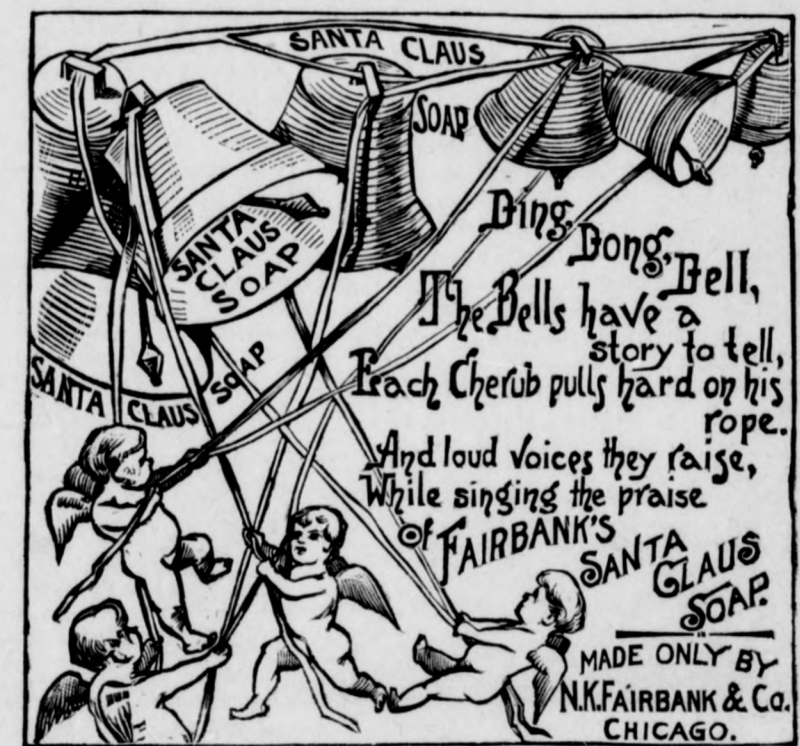 SANTA CLAUS
SOAP
SANTA
CLAUS
SOAP
SANTA CLAUS SOAP
Ding,
Dong,
Dell,
The Bells have a
story to tell,
Each Cherub pulls hard on his
rope.
And loud voices they raise,
While singing the praise
Of FAIRBANK'S
SANTA
CLAUS
SOAP.
MADE ONLY BY
N.K. FAIRBANK & Co.
CHICAGO.